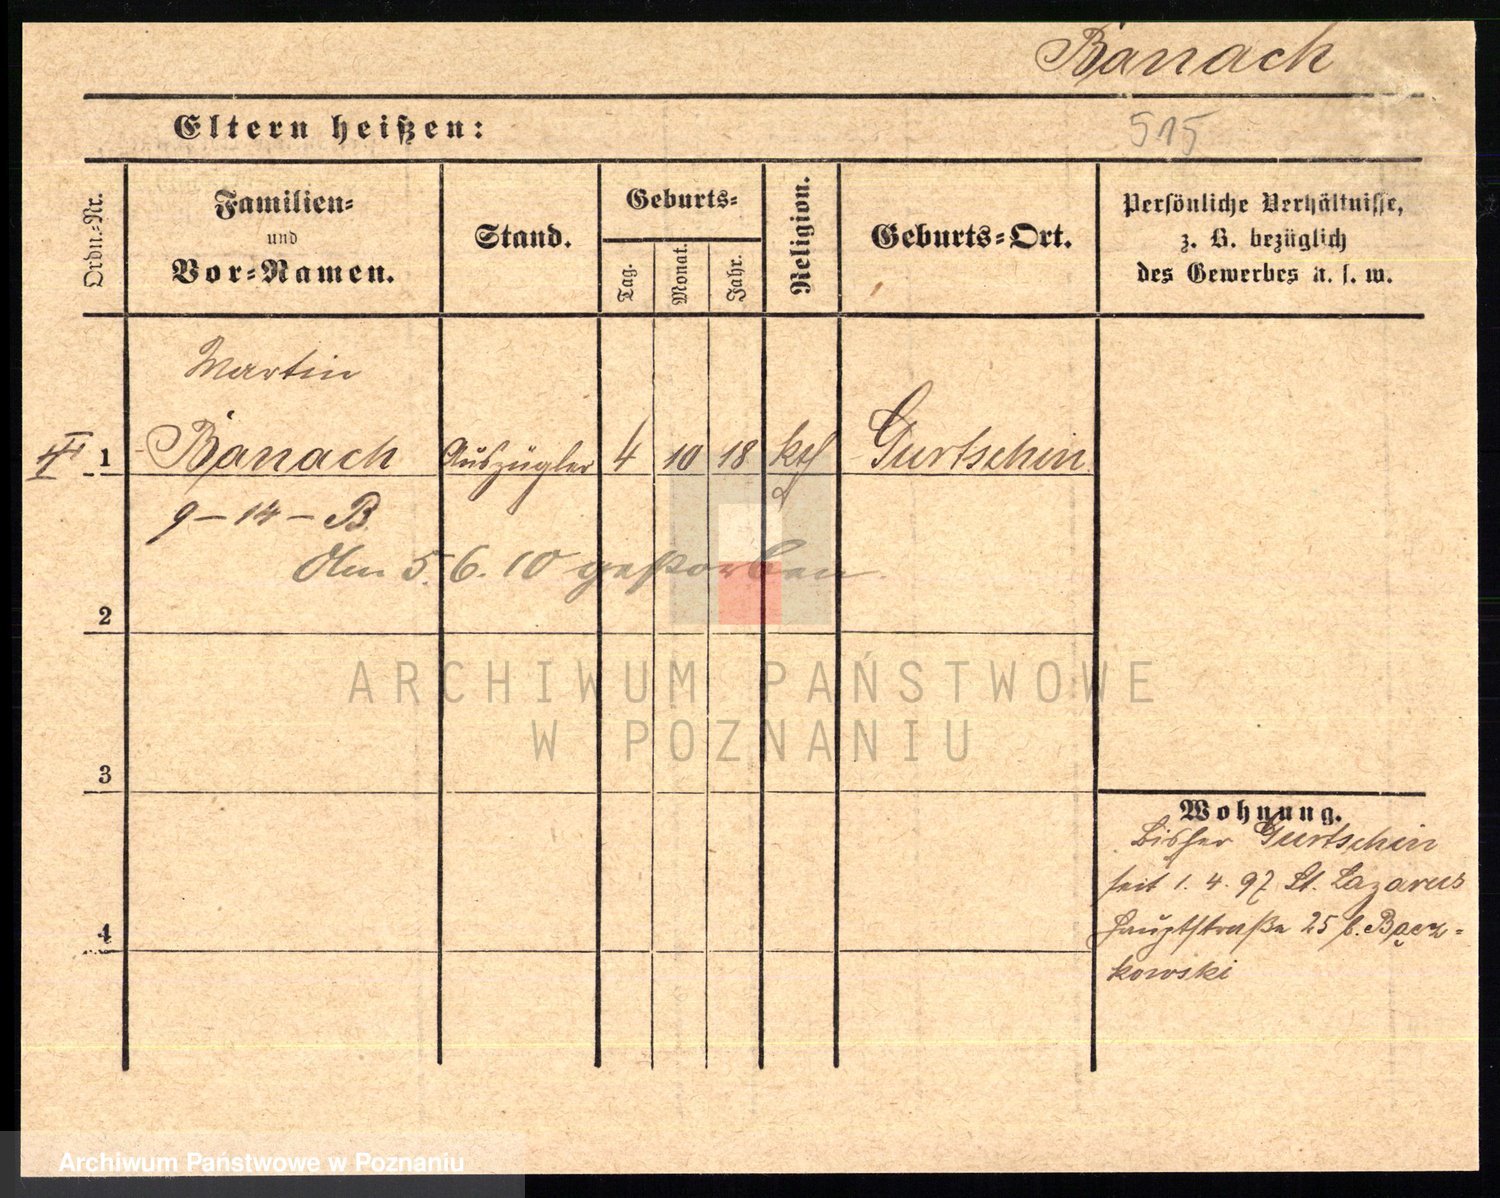 Banach
Eltern heißen:
515
Ordn.-Nr.
Familien-
und
Vor-Namen.
Stand.
Geburts-
Tag.
Monat.
Jahr.
Religion.
Geburts-Ort.
Persönliche Verhältnisse,
z. B. bezüglich
des Gewerbes u. s. w.
Martin
1 Banach Auszügler 4 10 18 kth Gurtschin
9-14-B.
Am 5.6.10 gestorben.
2
ARCHIWUM PAŃSTWOWE
W POZNANIU
3
Wohnung.
Bisher Gurtschin
seit 1.4.97 St. Lazarus
Hauptstraße 25 b. Bącz-
kowski
4
Archiwum Państwowe w Poznaniu